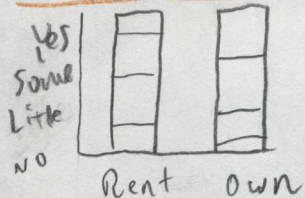 Yes
Some
Little
NO
Rent Own